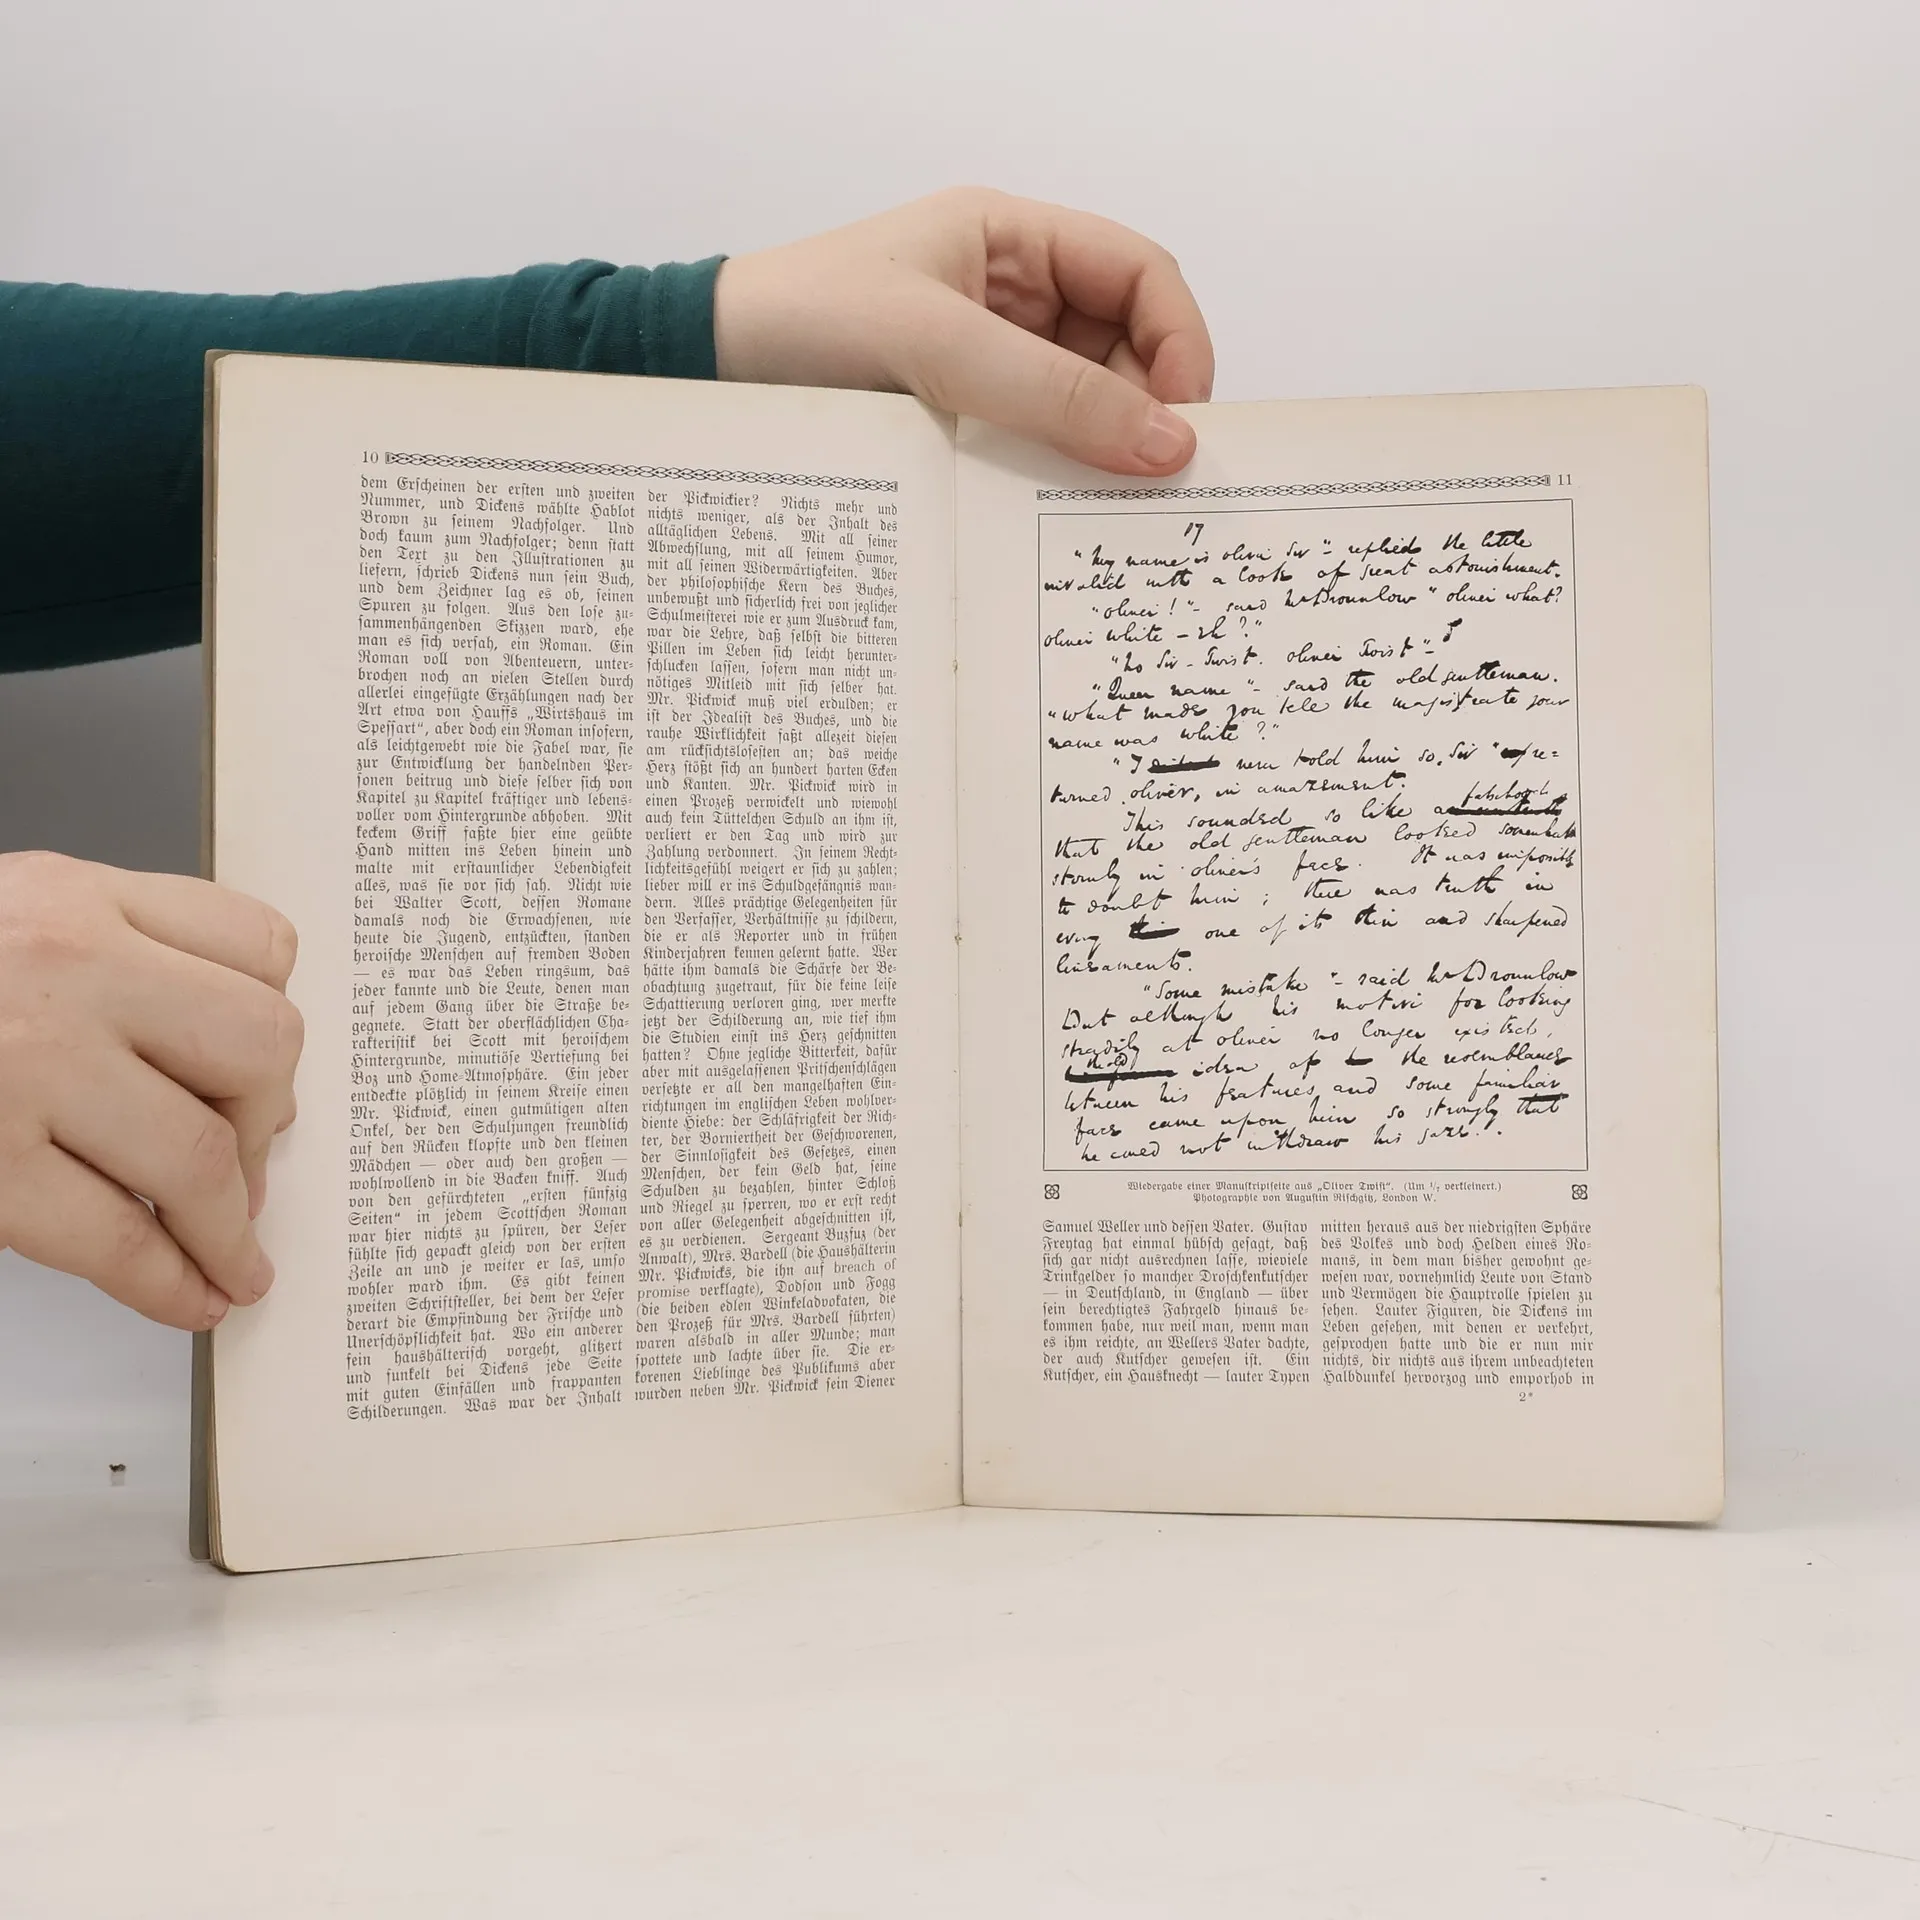 10
dem Erscheinen der ersten und zweiten
Nummer, und Dickens wählte Hablot
Brown zu seinem Nachfolger. Und
doch kaum zum Nachfolger; denn statt
den Text zu den Illustrationen zu
liefern, schrieb Dickens nun sein Buch,
und dem Zeichner lag es ob, seinen
Spuren zu folgen. Aus den lose zu-
sammenhängenden Skizzen ward, ehe
man es sich versah, ein Roman. Ein
Roman voll von Abenteuern, unter-
brochen noch an vielen Stellen durch
allerlei eingefügte Erzählungen nach der
Art etwa von Hauffs „Wirtshaus im
Spessart“, aber doch ein Roman insofern,
als leichtgewebt wie die Fabel war, sie
zur Entwicklung der handelnden Per-
sonen beitrug und diese selber sich von
Kapitel zu Kapitel kräftiger und lebens-
voller vom Hintergrunde abhoben. Mit
keckem Griff faßte hier eine geübte
Hand mitten ins Leben hinein und
malte mit erstaunlicher Lebendigkeit
alles, was sie vor sich sah. Nicht wie
bei Walter Scott, dessen Romane
damals noch die Erwachsenen, wie
heute die Jugend, entzückten, standen
heroische Menschen auf fremden Boden
— es war das Leben ringsum, das
jeder kannte und die Leute, denen man
auf jedem Gang über die Straße be-
gegnete. Statt der oberflächlichen Cha-
rakteristik bei Scott mit heroischem
Hintergrunde, minutiöse Vertiefung bei
Boz und Home-Atmosphäre. Ein jeder
entdeckte plötzlich in seinem Kreise einen
Mr. Pickwick, einen gutmütigen alten
Onkel, der den Schuljungen freundlich
auf den Rücken klopfte und den kleinen
Mädchen — oder auch den großen —
wohlwollend in die Backen kniff. Auch
von den gefürchteten „ersten fünfzig
Seiten“ in jedem Scottschen Roman
war hier nichts zu spüren, der Leser
fühlte sich gepackt gleich von der ersten
Zeile an und je weiter er las, umso
wohler ward ihm. Es gibt keinen
zweiten Schriftsteller, bei dem der Leser
derart die Empfindung der Frische und
Unerschöpflichkeit hat. Wo ein anderer
fein haushälterisch vorgeht, glitzert
und funkelt bei Dickens jede Seite
mit guten Einfällen und frappanten
Schilderungen. Was war der Inhalt
der Pickwickier? Nichts mehr und
nichts weniger, als der Inhalt des
alltäglichen Lebens. Mit all seiner
Abwechslung, mit all seinem Humor,
mit all seinen Widerwärtigkeiten. Aber
der philosophische Kern des Buches,
unbewußt und sicherlich frei von jeglicher
Schulmeisterei wie er zum Ausdruck kam,
war die Lehre, daß selbst die bitteren
Pillen im Leben sich leicht herunter-
schlucken lassen, sofern man nicht un-
nötiges Mitleid mit sich selber hat.
Mr. Pickwick muß viel erdulden; er
ist der Idealist des Buches, und die
rauhe Wirklichkeit faßt allezeit diesen
am rücksichtslosesten an; das weiche
Herz stößt sich an hundert harten Ecken
und Kanten. Mr. Pickwick wird in
einen Prozeß verwickelt und wiewohl
auch kein Tüttelchen Schuld an ihm ist,
verliert er den Tag und wird zur
Zahlung verdonnert. In seinem Recht-
lichkeitsgefühl weigert er sich zu zahlen;
lieber will er ins Schuldgefängnis wan-
dern. Alles prächtige Gelegenheiten für
den Verfasser, Verhältnisse zu schildern,
die er als Reporter und in frühen
Kinderjahren kennen gelernt hatte. Wer
hätte ihm damals die Schärfe der Be-
obachtung zugetraut, für die keine leise
Schattierung verloren ging, wer merkte
jetzt der Schilderung an, wie tief ihm
die Studien einst ins Herz geschnitten
hatten? Ohne jegliche Bitterkeit, dafür
aber mit ausgelassenen Pritschenschlägen
versetzte er all den mangelhaften Ein-
richtungen im englischen Leben wohlver-
diente Hiebe: der Schläfrigkeit der Rich-
ter, der Borniertheit der Geschworenen,
der Sinnlosigkeit des Gesetzes, einen
Menschen, der kein Geld hat, seine
Schulden zu bezahlen, hinter Schloß
und Riegel zu sperren, wo er erst recht
von aller Gelegenheit abgeschnitten ist,
es zu verdienen. Sergeant Buzfuz (der
Anwalt), Mrs. Bardell (die Haushälterin
Mr. Pickwicks, die ihn auf breach of
promise verklagte), Dodson und Fogg
(die beiden edlen Winkeladvokaten, die
den Prozeß für Mrs. Bardell führten)
waren alsbald in aller Munde; man
spottete und lachte über sie. Die er-
korenen Lieblinge des Publikums aber
wurden neben Mr. Pickwick sein Diener
11
17
"My name is oliver Sir" - replied the little
invalid with a look of great astonishment.
"oliver!" - said Mr Brownlow "oliver what?
oliver white - eh?"
"No Sir - Twist. oliver Twist" -
"Queer name" - said the old gentleman.
"what made you tell the magistrate your
name was white?"
"I never told him so, Sir" re=
turned oliver, in amazement.
This sounded so like a falsehood
that the old gentleman looked somewhat
sternly in oliver's face. It was impossible
to doubt him; there was truth in
every one of its thin and sharpened
lineaments.
"Some mistake" - said Mr Brownlow
But although his motive for looking
steadily at oliver no longer existed,
the old idea of the resemblance
between his features and some familiar
face came upon him so strongly that
he could not withdraw his gaze.
Wiedergabe einer Manuskriptseite aus „Oliver Twist“. (Um 1/7 verkleinert.)
Photographie von Augustin Rischgitz, London W.
Samuel Weller und dessen Vater. Gustav
Freytag hat einmal hübsch gesagt, daß
sich gar nicht ausrechnen lasse, wieviele
Trinkgelder so mancher Droschkenkutscher
— in Deutschland, in England — über
sein berechtigtes Fahrgeld hinaus be-
kommen habe, nur weil man, wenn man
es ihm reichte, an Wellers Vater dachte,
der auch Kutscher gewesen ist. Ein
Kutscher, ein Hausknecht — lauter Typen
mitten heraus aus der niedrigsten Sphäre
des Volkes und doch Helden eines Ro-
mans, in dem man bisher gewohnt ge-
wesen war, vornehmlich Leute von Stand
und Vermögen die Hauptrolle spielen zu
sehen. Lauter Figuren, die Dickens im
Leben gesehen, mit denen er verkehrt,
gesprochen hatte und die er nun mir
nichts, dir nichts aus ihrem unbeachteten
Halbdunkel hervorzog und emporhob in
2*